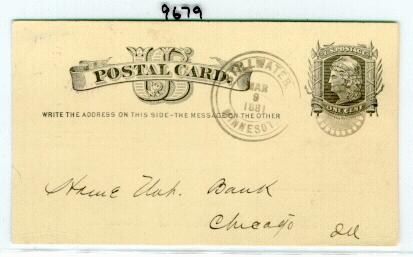 9679
U.S. POSTAGE
ONE CENT
US
POSTAL CARD.
STILLWATER
MAR
9
1881
MINNESOTA
WRITE THE ADDRESS ON THIS SIDE-THE MESSAGE ON THE OTHER
Home Nat. Bank
Chicago Ill